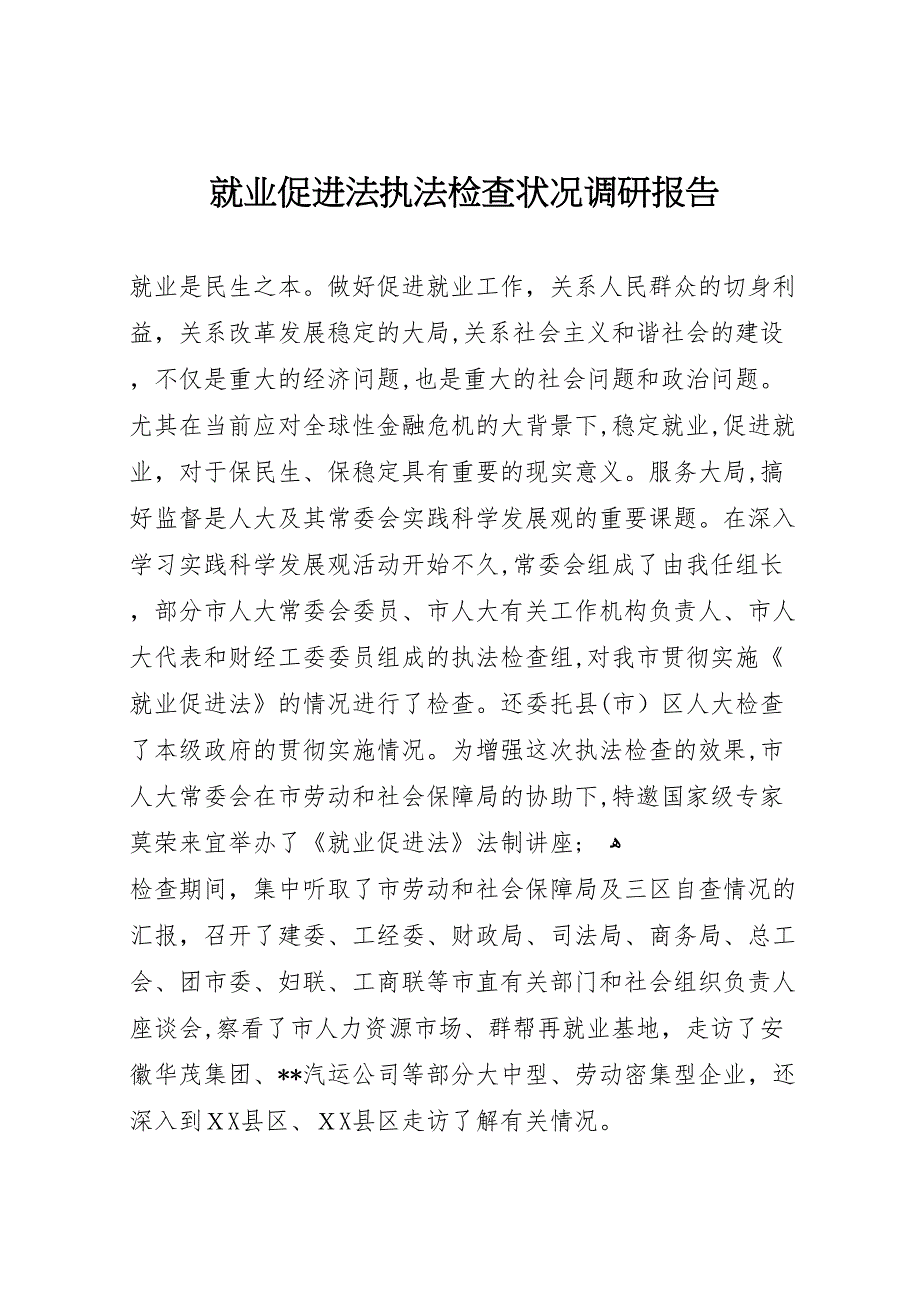 就业促进法执法检查状况调研报告
就业是民生之本。做好促进就业工作，关系人民群众的切身利
益，关系改革发展稳定的大局,关系社会主义和谐社会的建设
，不仅是重大的经济问题,也是重大的社会问题和政治问题。
尤其在当前应对全球性金融危机的大背景下,稳定就业,促进就
业，对于保民生、保稳定具有重要的现实意义。服务大局,搞
好监督是人大及其常委会实践科学发展观的重要课题。在深入
学习实践科学发展观活动开始不久,常委会组成了由我任组长
，部分市人大常委会委员、市人大有关工作机构负责人、市人
大代表和财经工委委员组成的执法检查组,对我市贯彻实施《
就业促进法》的情况进行了检查。还委托县(市）区人大检查
了本级政府的贯彻实施情况。为增强这次执法检查的效果,市
人大常委会在市劳动和社会保障局的协助下,特邀国家级专家
莫荣来宜举办了《就业促进法》法制讲座; ﻫ
检查期间，集中听取了市劳动和社会保障局及三区自查情况的
汇报，召开了建委、工经委、财政局、司法局、商务局、总工
会、团市委、妇联、工商联等市直有关部门和社会组织负责人
座谈会,察看了市人力资源市场、群帮再就业基地，走访了安
徽华茂集团、**汽运公司等部分大中型、劳动密集型企业，还
深入到ＸX县区、ＸX县区走访了解有关情况。